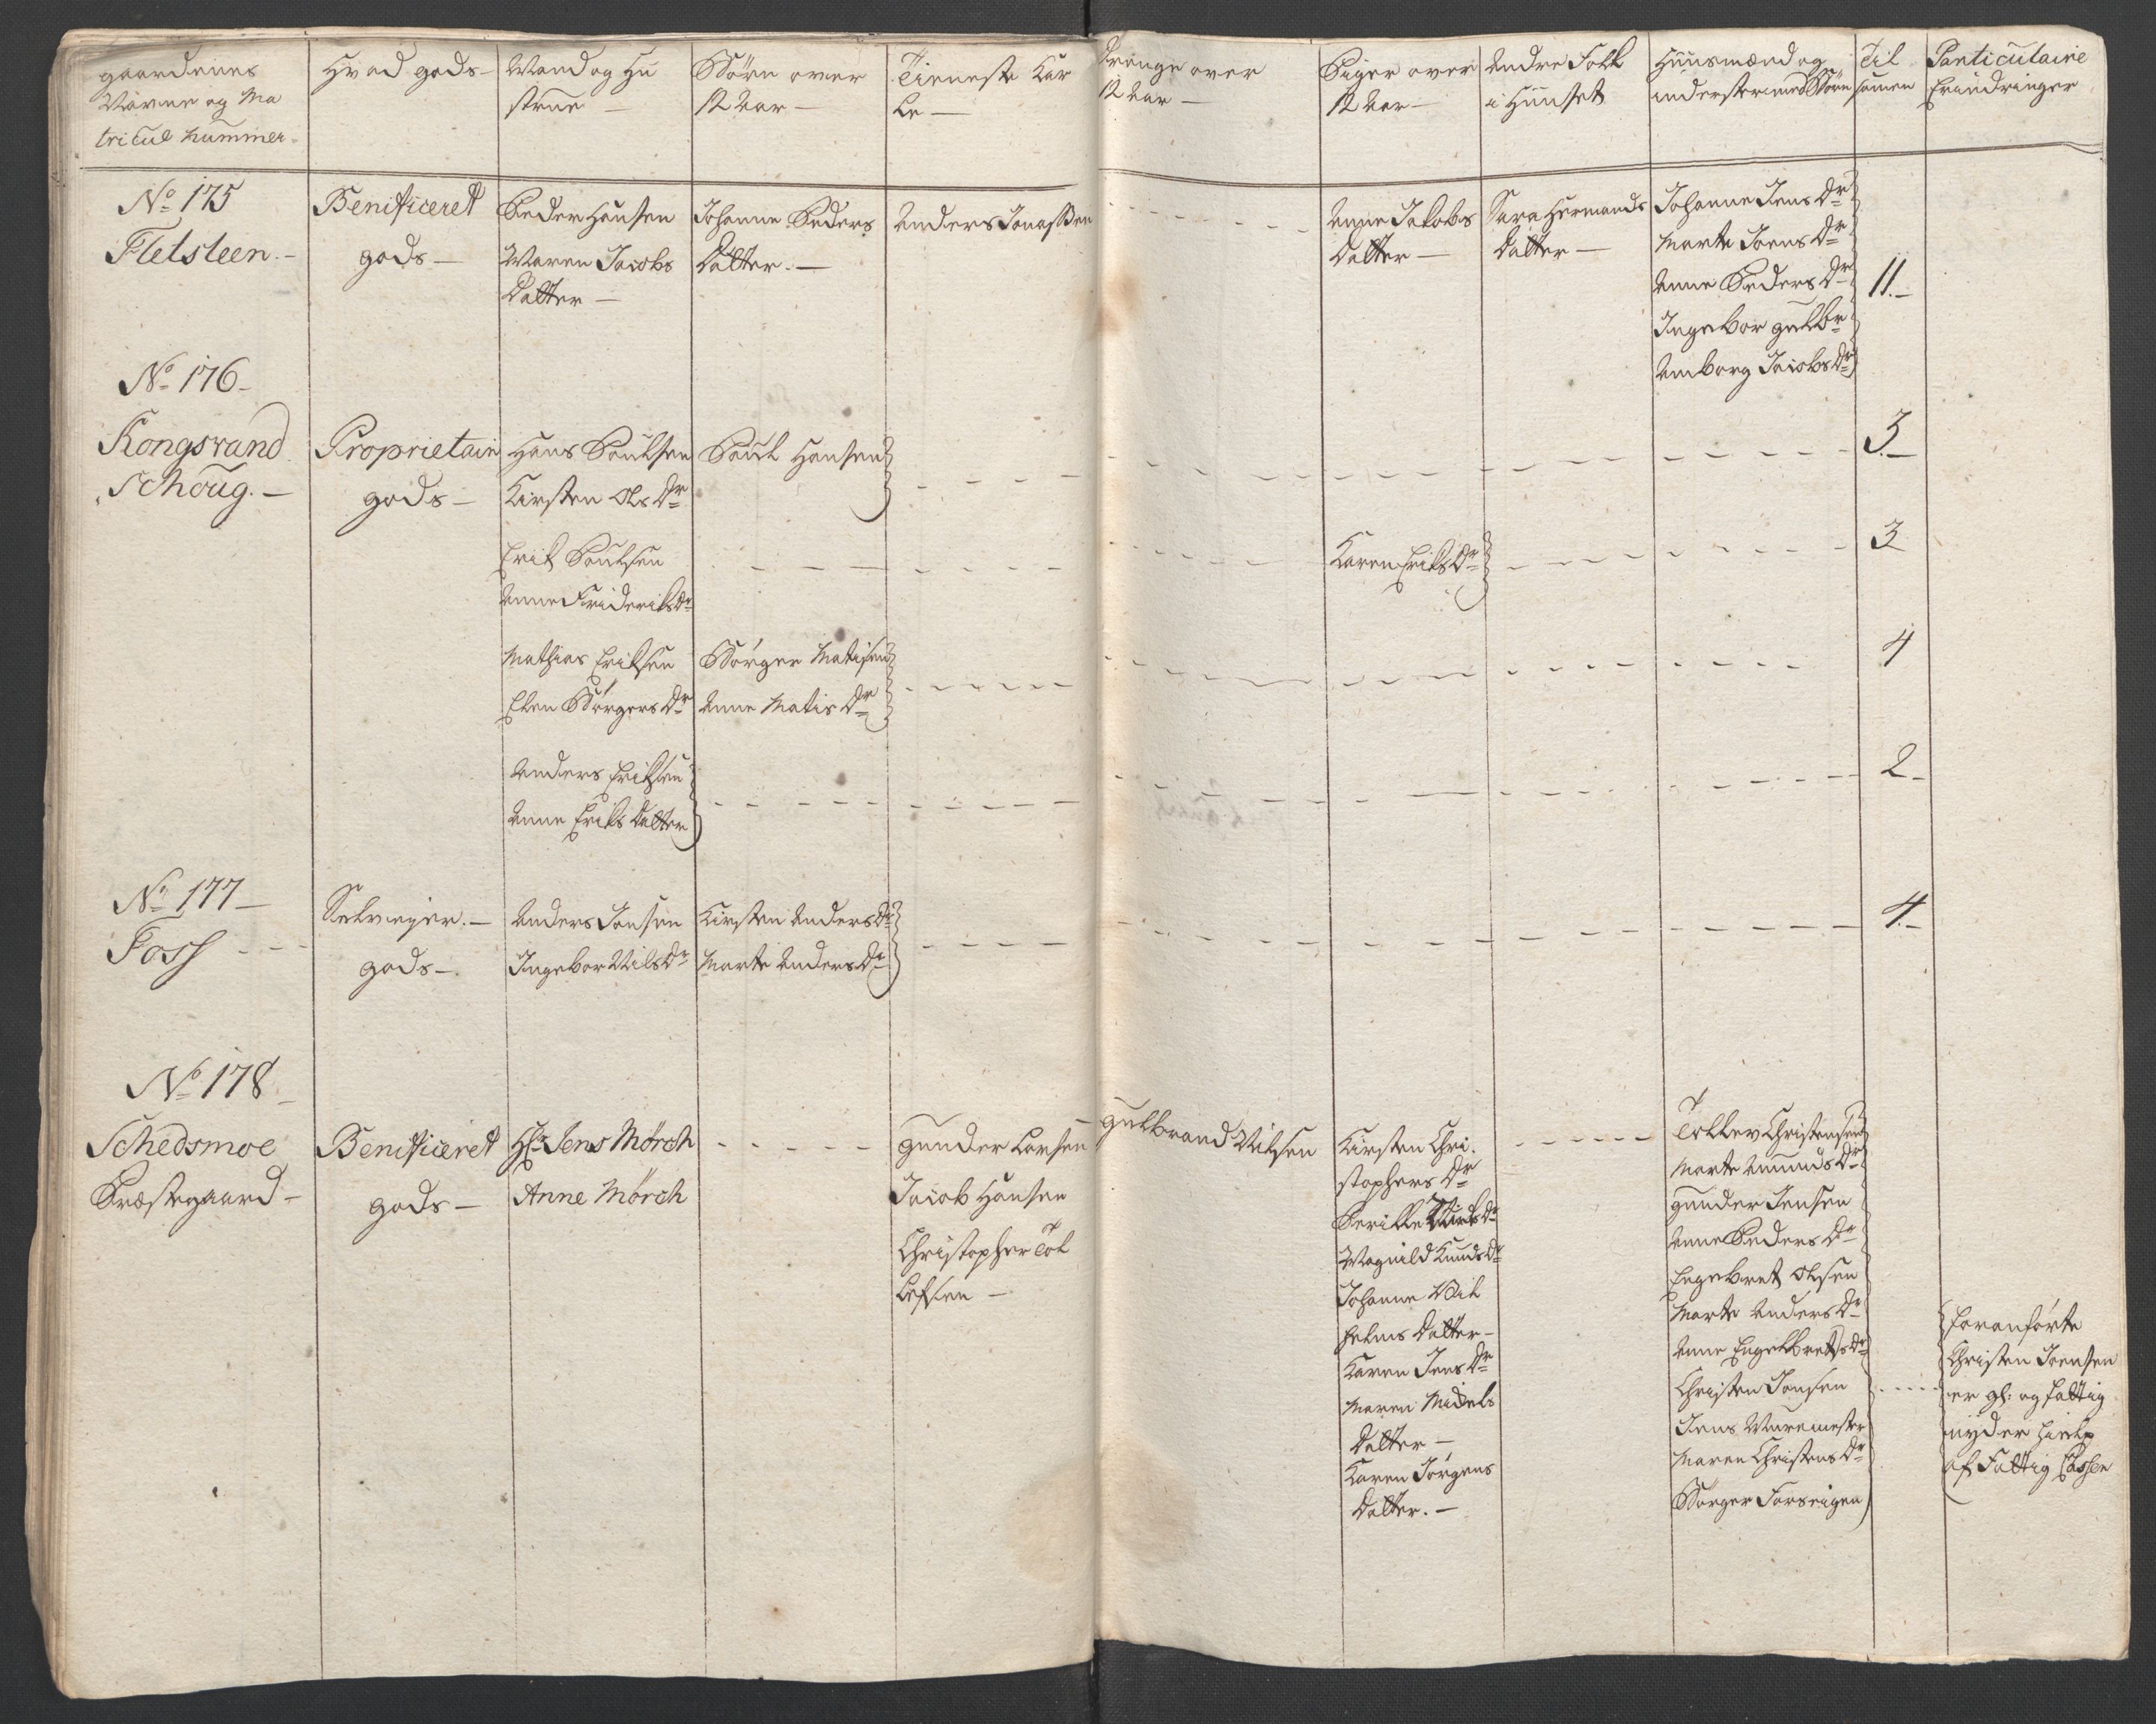 gaardenes
Navne og Ma
tricul Nummer.
Hvad gods
Mand og Hu
strue
Børn over
12 Aar
Tieneste Kar
le
Drenge over
12 Aar
Piger over
12 Aar
Andre Folk
i Huuset
Huusmænd og
inderster med Børn
Til
samen
Particulaire
Erindringer
No 175
Fletsteen.
Benificeret
gods
Peder Hansen
Maren Jacobs
Datter
Johanne Peders
Datter.
Anders Jonassen
Anne Jakobs
Datter
Sara Hermands
Datter
Johanne Jens Dr
Marte Joens Dr
Anne Peders Dr
Ingebor gulbr
Amborg Jacobs Dr
11.
No 176
Kongsrand
Schoug.
Proprietair
gods
Hans Poulsen
Kirsten Ols Dr
Poul Hansen
3.
Erik Poulsen
Anne Frideriks Dr
Karen Eriks Dr
3
Mathias Eriksen
Elen Børgers Dr
Børger Matisen
Anne Matis Dr
4
Anders Eriksen
Anne Eriks Datter
2
No 177
Foss
Selveyer.
gods
Anders Jonsen
Ingebor Nils Dr
Kirsten Anders Dr
Marte Anders Dr
4.
No 178
Schedsmoe
Præstegaard
Benificeret
gods
Hr. Jens Mörch
Anne Mörch
gunder Larsen
Jacob Hansen
Christopher Tol
lefsen
gulbrand Nilsen
Kirsten Chri.
stophers Dr
Berille Dr
Magnild Knuds Dr
Johanne Wil
helms Datter
Karen Jens Dr
Maren Mickels
Datter
Karen Jörgens
Datter.
Tollev Christensen
Marte Amunds Dr
gunder Jensen
Anne Peders Dr
Engebret Olsen
Marte Anders Dr
Anne Engelbrets Dr
Christen Jonsen
Jens Muremester
Maren Christens Dr
Børger Forseigen
foranførte
Christen Joensen
er gl: og fattig
nyder hielp
af Fattig Cassen